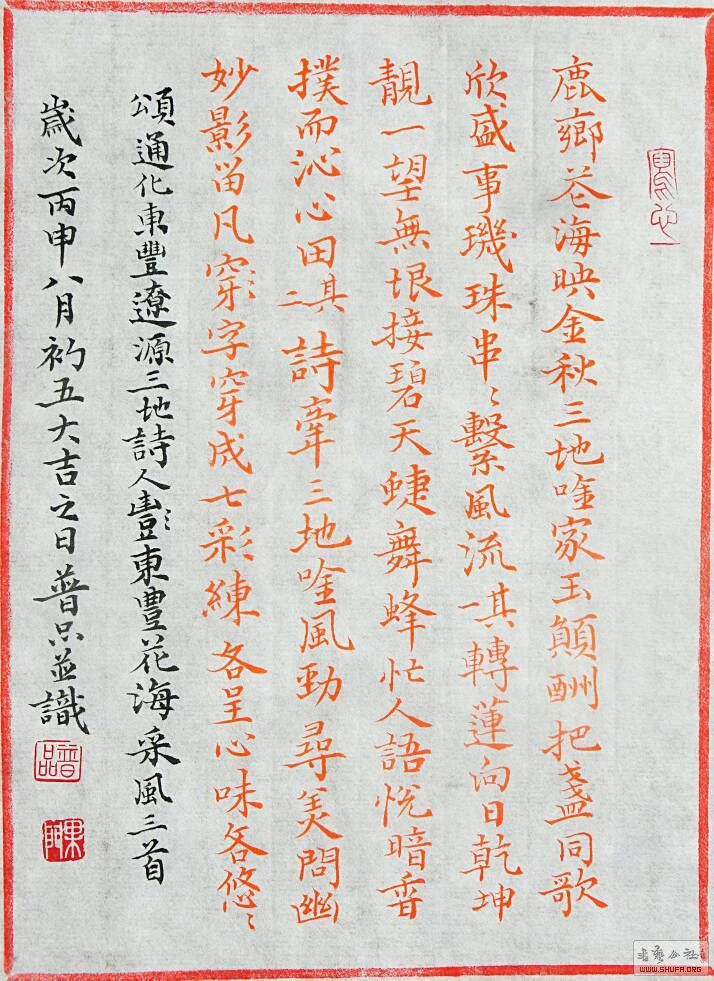 鹿鄉花海映金秋三地唫家玉顛酬把盞同歌
欣盛事璣珠串〻繫風流其一轉蓮向日乾坤
靚一望無垠接碧天蜨舞蜂忙人語悅暗香
撲而沁心田其二詩牽三地唫風勁尋美問幽
妙影留凡穿字穿成七彩練各呈心味各悠〻
頌通化東豐遼源三地詩人豐東豐花海采風三首
歲次丙申八月初五大吉之日普品並識
普品
书艺公社
WWW.SHUFA.ORG